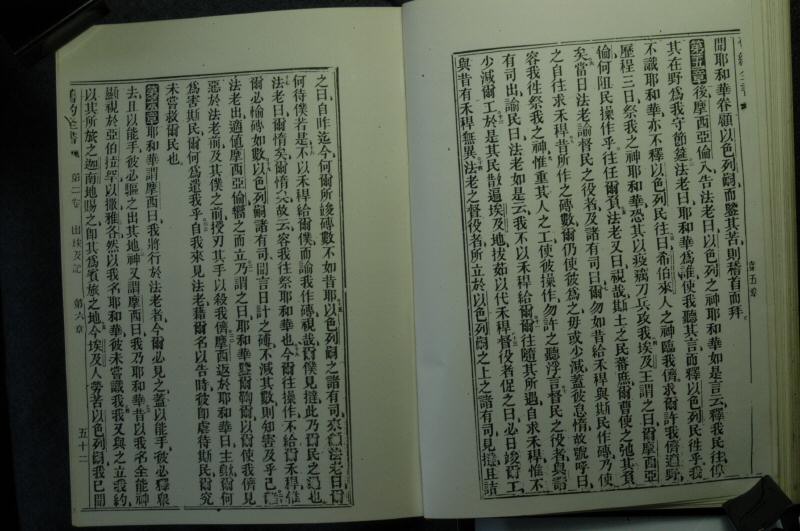 聞耶和華眷顧以色列嗣而鑒其苦則稽首而拜
第五章後摩西亞倫入告法老曰以色列之神耶和華如是言云釋我民往俾
其在野爲我守節筵法老曰耶和華爲誰使我聽其言而釋以色列民往乎我
不識耶和華亦不釋以色列民往曰希伯來人之神臨我儕求爾許我儕適野
歷程三日祭我之神耶和華恐其以疫癘刀兵攻我埃及王謂之曰爾摩西亞
倫何阻民操作乎往任爾負法老又曰視哉斯土之民蕃庶爾曹使之弛其負
矣當日法老諭督民之役者及諸有司曰爾勿如昔給禾稈與斯民作磚乃使
之自往求禾稈昔所作之磚數爾仍使彼爲之毋或少減蓋彼怠惰故號呼曰
容我往祭我之神惟重其人之工使彼操作勿許之聽浮言督民之役者與諸
有司出諭民曰法老如是云我不以禾稈給爾爾往隨其所遇自求禾稈惟不
少減爾工於是其民散遍埃及地拔茹以代禾稈督役者促之曰必日竣爾工
與昔有禾稈無異法老之督役者所立於以色列嗣之上之諸有司見撻且詰
之曰自昨迄今何爾所竣磚數不如昔耶以色列嗣之諸有司來籲法老曰爾
何待僕若是不以禾稈給爾僕而諭我作磚視哉爾僕見撻此乃爾民之過也
法老曰爾惰矣爾惰矣故云容我往祭耶和華也今爾往操作不給爾禾稈惟
爾必愉磚如數以色列嗣諸有司聞言日計之磚不減其數則知害及乎己
法老出適値摩西亞倫嚮之而立乃謂之曰耶和華鑒爾鞫爾以爾使我儕見
惡於法老前及其僕之前授刃其手以殺我儕摩西返於耶和華曰主歟爾何
爲害斯民爾何爲遣我乎自我來見法老藉爾名以告時彼卽虐待斯民爾究
未嘗救爾民也
第六章耶和華謂摩西曰我將行於法老者今爾必見之蓋以能手彼必釋衆
去且以能手彼必驅之出其地神又謂摩西曰我乃耶和華昔以我名全能神
顯視於亞伯拉罕以撒雅各然以我名耶和華彼未嘗識我我又與之立我約
以其所旅之迦南地賜之卽其爲賓旅之地今埃及人勞苦以色列嗣我已聞
舊約全書 第二卷 出埃及記 第六章 五十二